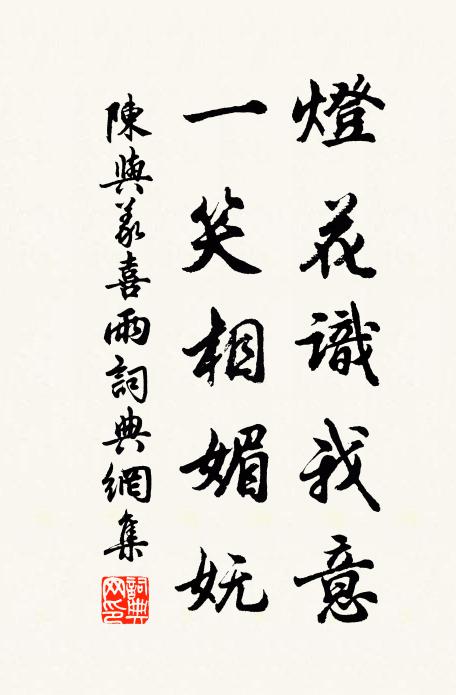 燈花識我意
一笑相媚妩
陳與義喜雨詞典網集
詞典网印